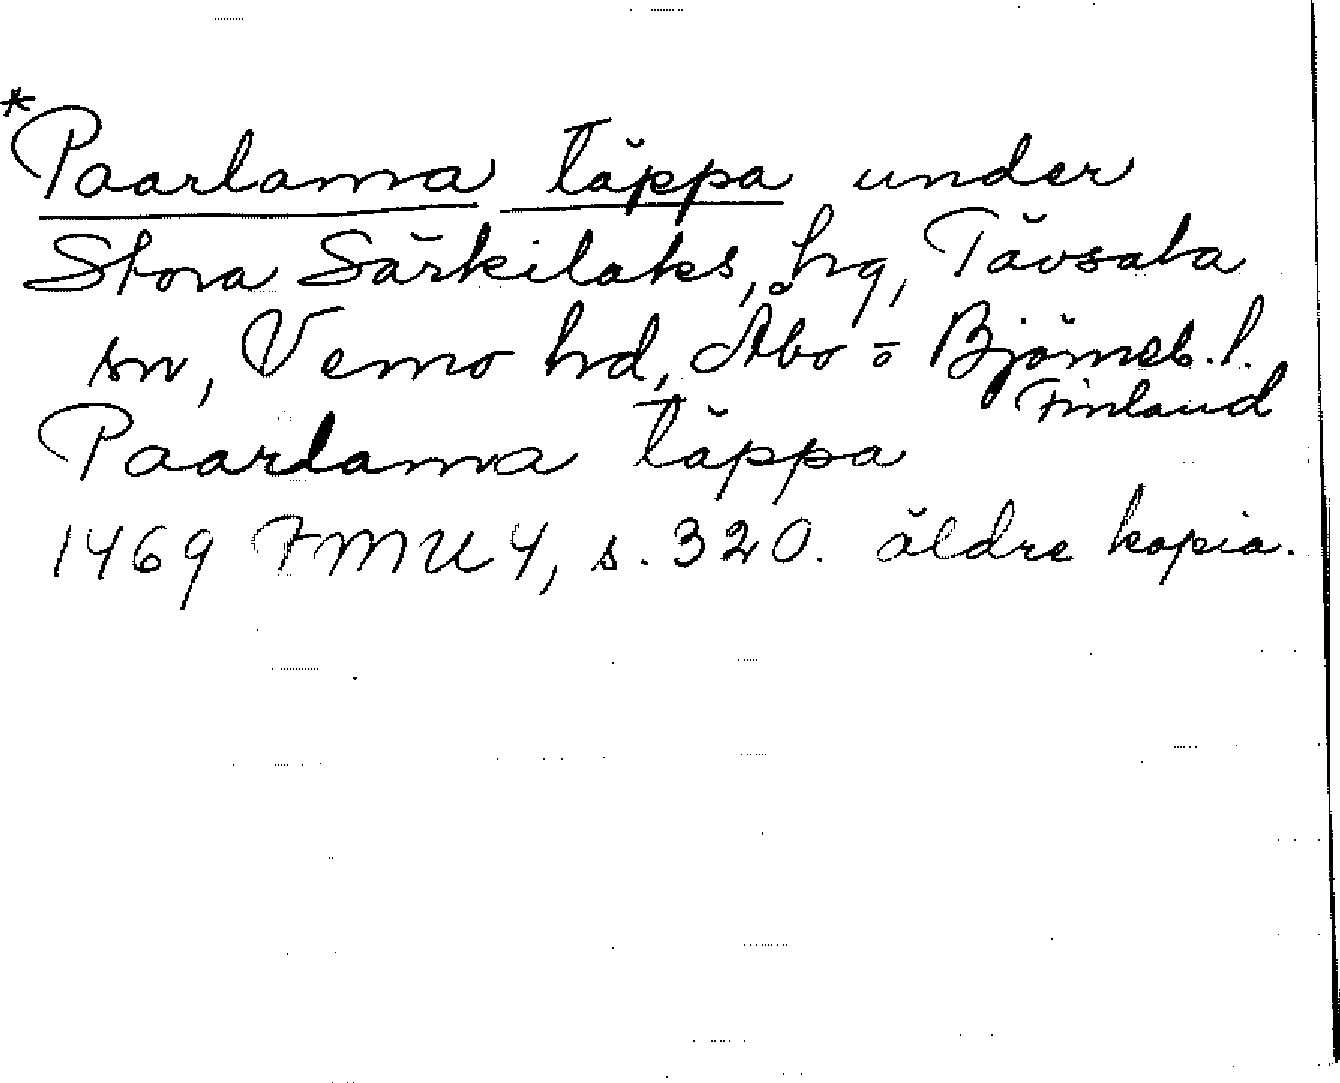 *Paarlama täppa under
Stora Särkilaks, hrg, Tävsala
sn, Vemo hd, Åbo o Björneb. l.
Finland
Paarlama täppa
1469 FMU 4, s. 320. äldre kopia.